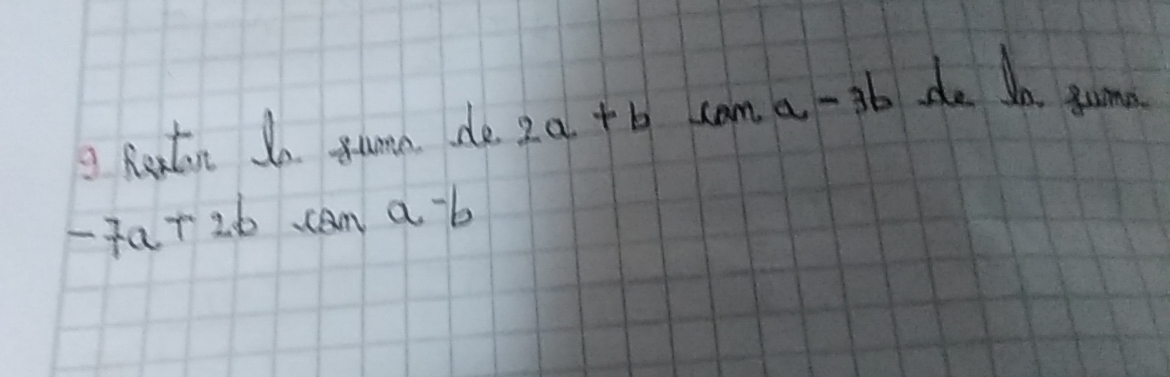 9 Restar la suma de 2a + b con a - 3b de la suma
- 7a + 2b con a - b